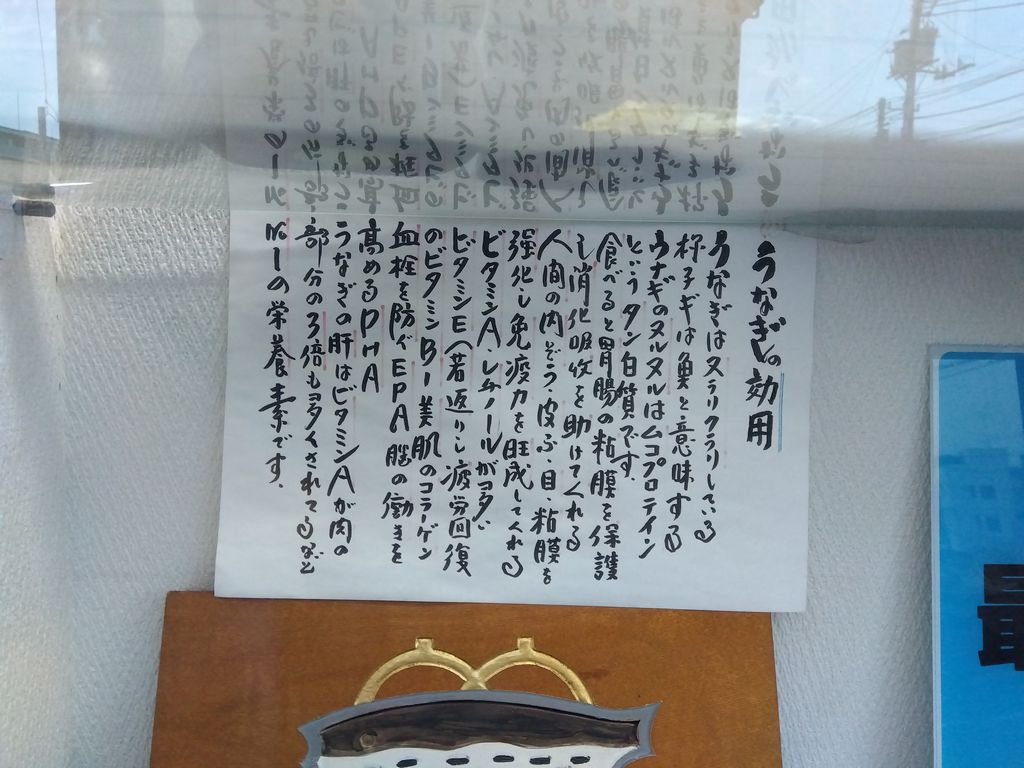 うなぎの効用
うなぎはヌラリクラリしている
ギは魚と意味する
ウナギのヌルヌルはムコプロテイン
というタン白質です。
食べると胃腸の粘膜を保護
し消化吸収を助けてくれる
人間の内ぞう・皮ふ・目・粘膜を
強化し免疫力を旺成してくれる
ビタミンA・レチノールが多い
ビタミンE(若返り)し疲労回復
のビタミンB1美肌のコラーゲン
血栓を防ぐEPA脳の働きを
高めるDHA
うなぎの肝はビタミンAが肉の
部分の3倍も多くされてるなど
No.1の栄養素です。
最